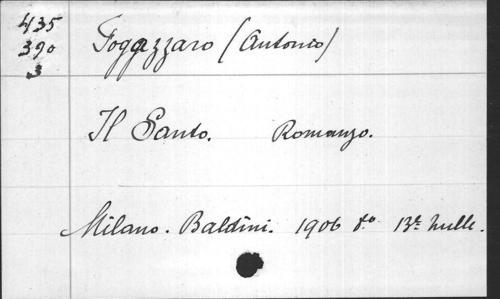 435
390
3
Fogazzaro (Antonio)
Il Santo. Romanzo.
Milano. Baldini. 1906 8º 13º mille.